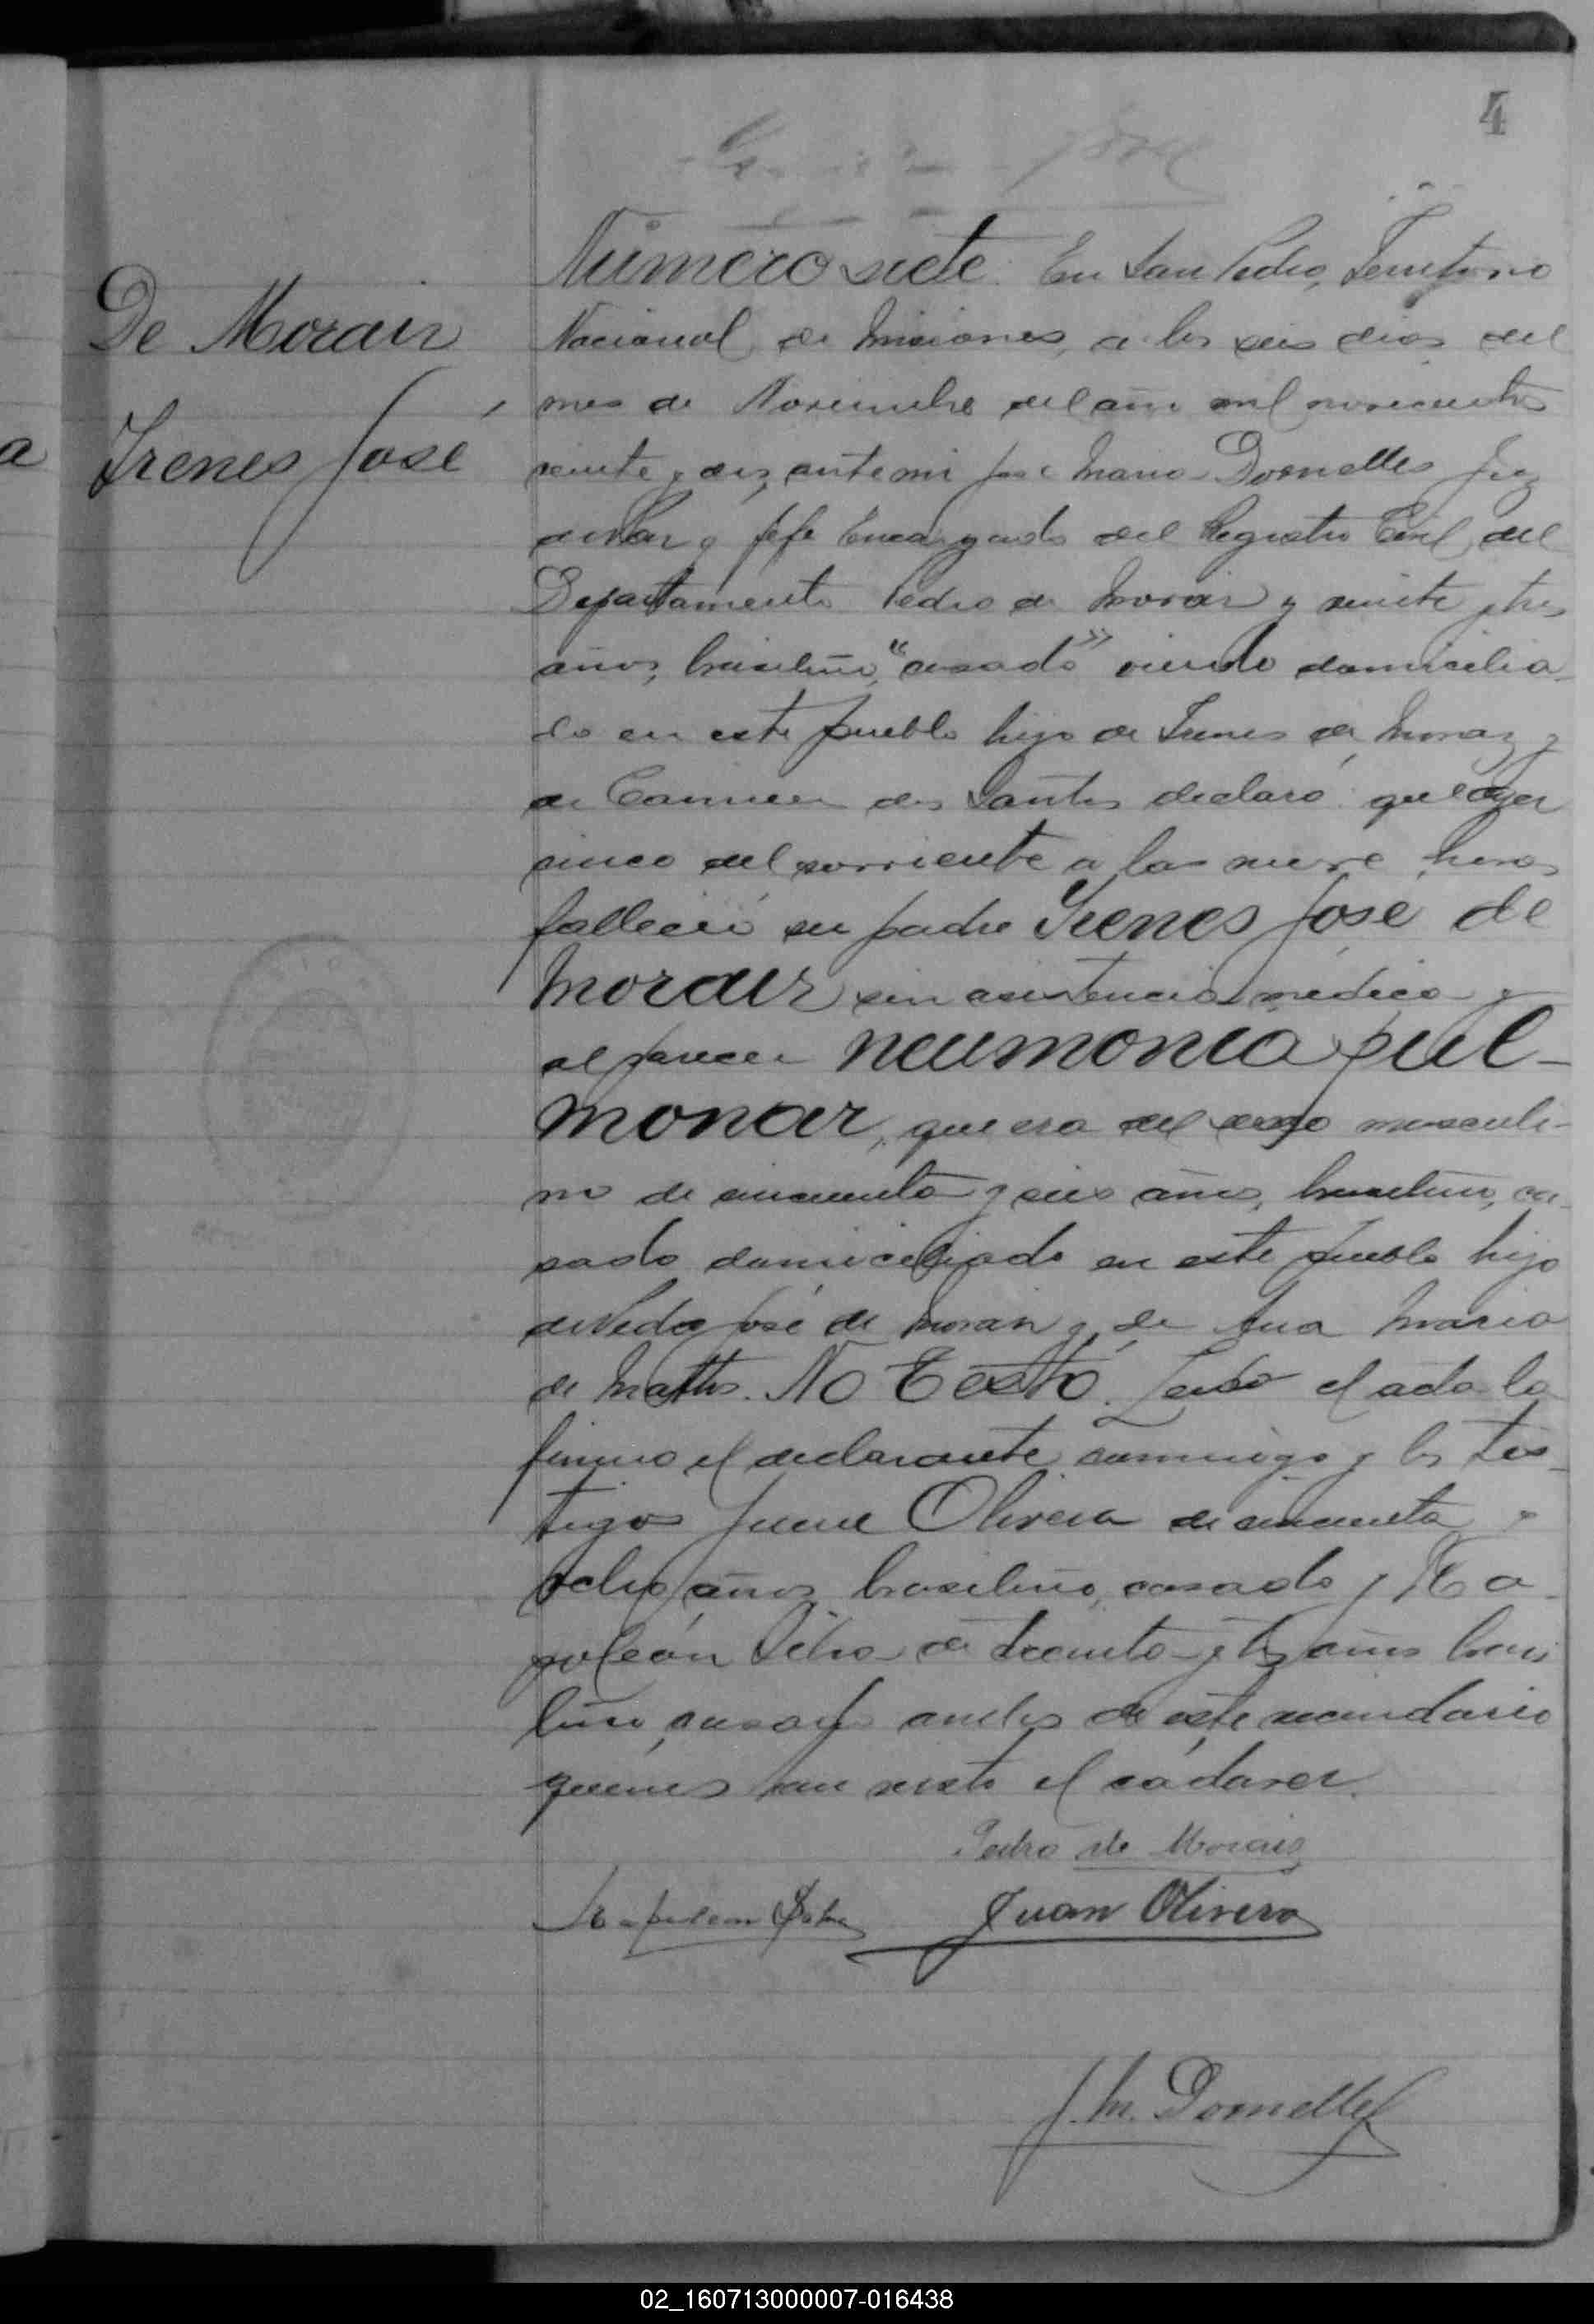 4
De Morais
Irenes José
a
Número siete. En San Pedro, Territorio
Nacional de Misiones, a los seis dias del
mes de Noviembre del año mil novecientos
veinte y dos, ante mi José Maria Dornelles Juez
de Paz y Jefe Encargado del Registro Civil del
Departamento Pedro de Morais y veinte y tres
años, brasileño, "casado" viudo domicilia-
do en este pueblo hijo de Irenes de Moraz y
de Carmen dos Santos declaró: que ayer
cinco del corriente a las nueve horas
falleció su padre Irenes José de
Morais sin asistencia médica y
al parecer neumonia pul-
monar, que era del sexo masculi-
no de cincuenta y seis años, brasileño, ca-
sado domiciliado en este pueblo hijo
de Pedro José de Morais y de Ana Maria
de Mattos. No Testó. Leido el acta la
firmó el declarante conmigo y los tes-
tigos Juan Olivera de cincuenta y
ocho años brasileño, casado y Na-
poleón Silva de treinta y tres años brasi
leño, casado ambos de este vecindario
quienes han visto el cádaver.
Pedro de Morais
Napoleon Silva Juan Olivera
J. M. Dornelles
02_160713000007-016438